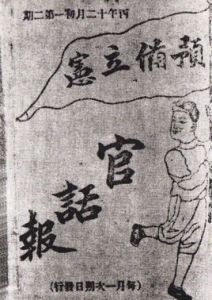 丙午十二月初一第二期
預備立憲
官話報
(每月一次朔日發行)